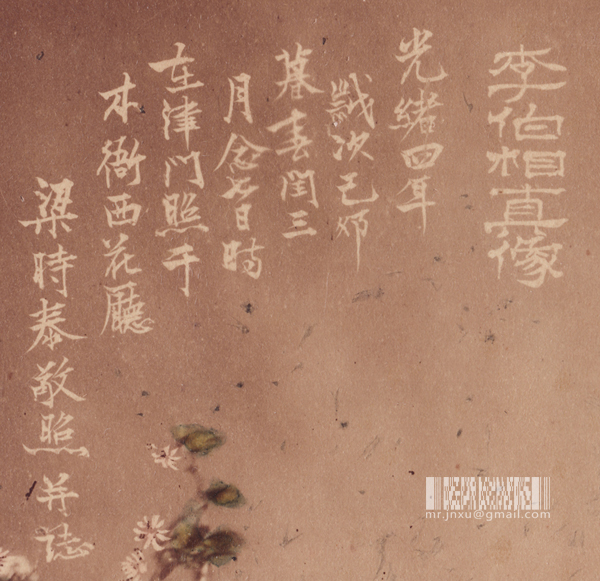 李伯相真像
光緒四年
歲次己卯
暮春閏三
月念七日時
在津門照于
本衙西花廳
梁時泰敬照并誌
mr.jnxu@gmail.com